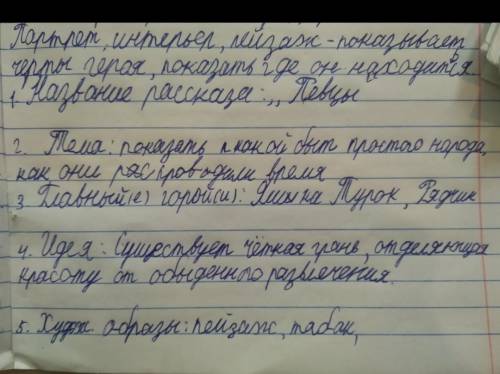 Партрет, интерьер, пейзаж - показывает
черты героя, показать где он находится
1. Название рассказа: ,, Певцы
2. Тема: показать какой быт простого народа,
как они распроводили время
3. Главный(е) горой(и): Яшка Турок, Рядчик
4. Идея: Существует чёткая грань, отделяющая
красоту от обыденного развлечения.
5. Худж. образы: пейзаж, табак,